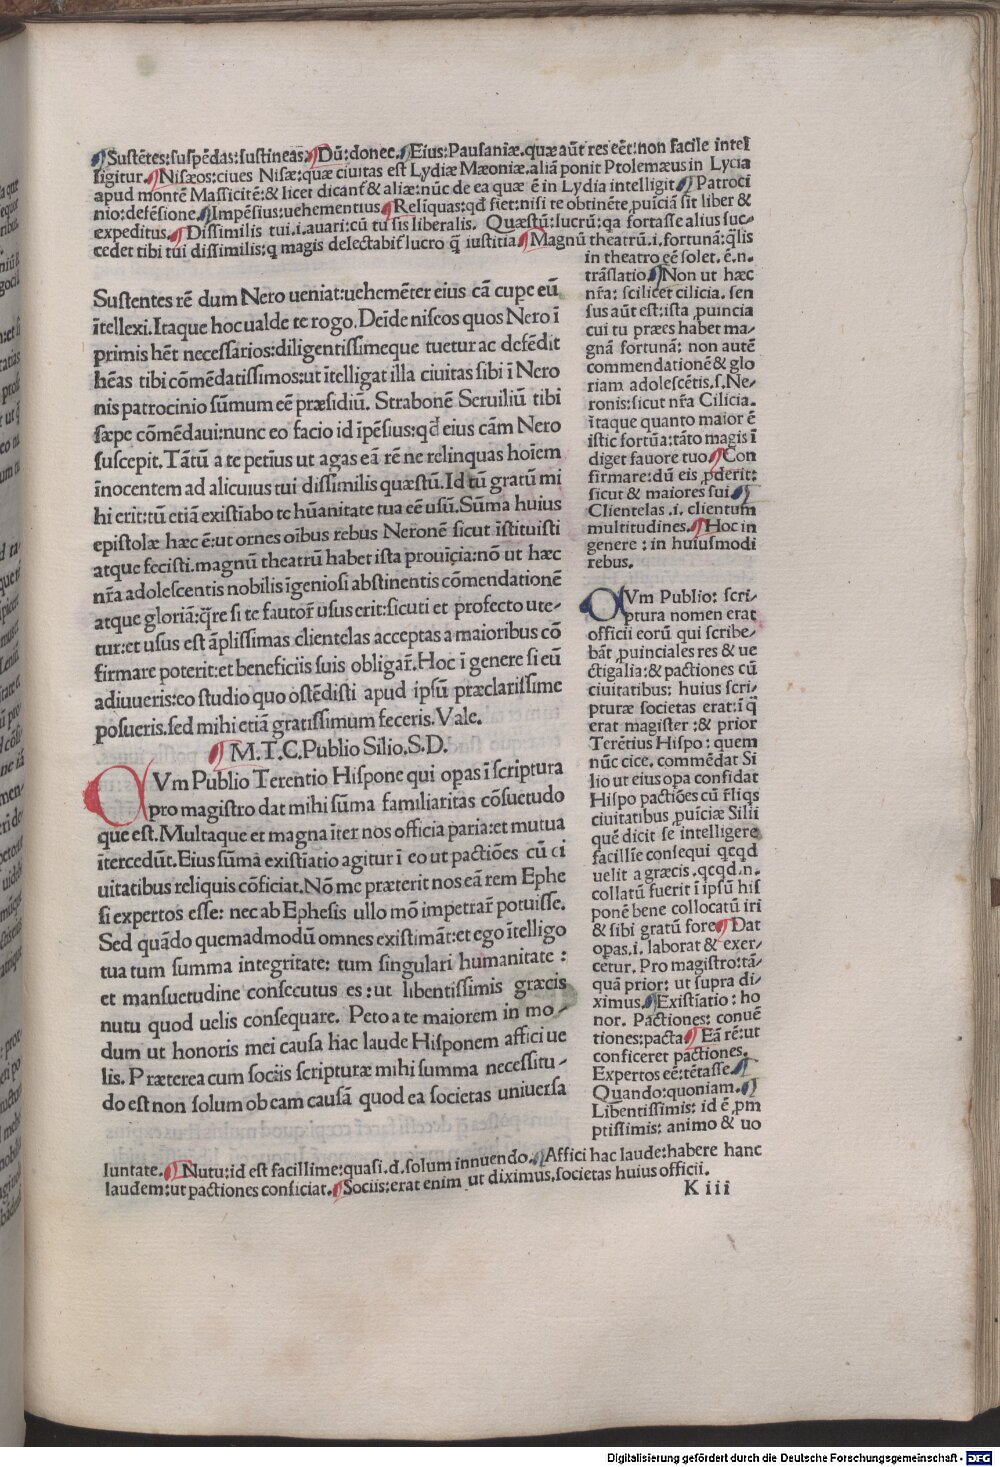 Sustētes:suspēdas:sustineas. Dū:donec. Eius:Pausaniæ.quæ aūt res eēt:non facile intel
ligitur. Nisæos:ciues Nisæ:quæ ciuitas est Lydiæ Mæoniæ.aliā ponit Ptolemæus in Lycia
apud montē Massicitē:& licet dicant̄ & aliæ:nūc de ea quæ ē in Lydia intelligit. Patroci
nio:defēsione. Impēsius:uehementius. Reliquas:qđ fiet:nisi te obtinēte ꝓuiciā sit liber &
expeditus. Dissimilis tui.i.auari:cū tu sis liberalis. Quæstū:lucrū:qa fortasse alius suc-
cedet tibi tui dissimilis:q magis delectabit̄ lucro q̄ iustitia. Magnū theatrū.i.fortunā:q̄lis
in theatro eē solet. ē.n.
trāslatio. Non ut hæc
nr̄a: scilicet cilicia. sen
sus aūt est:ista ꝓuincia
cui tu præes habet ma-
gnā fortunā: non autē
commendationē & glo
riam adolescētis.s.Ne-
ronis:sicut nr̄a Cilicia.
itaque quanto maior ē
istic fortūa:tāto magis ī
diget fauore tuo. Con
firmare:dū eis ꝓderit:
sicut & maiores sui.
Clientelas .i. clientum
multitudines. Hoc in
genere : in huiusmodi
rebus.
Sustentes rē dum Nero ueniat:uehemēter eius cā cupe eū
ītellexi.Itaque hoc ualde te rogo.Deīde niseos quos Nero ī
primis hēt necessarios:diligentissimeque tuetur ac defēdit
hēas tibi cōmēdatissimos:ut ītelligat illa ciuitas sibi ī Nero
nis patrocinio sūmum eē præsidiū. Strabonē Seruiliū tibi
sæpe cōmēdaui:nunc eo facio id īpēsius:qđ eius cām Nero
suscepit.Tātū a te petius ut agas eā rē ne relinquas hoīem
īnocentem ad alicuius tui dissimilis quæstū.Id tū gratū mi
hi erit:tū etiā existīabo te hūanitate tua eē usū.Sūma huius
epistolæ hæc ē:ut ornes oībus rebus Neronē sicut īstituisti
atque fecisti.magnū theatrū habet ista prouīçia:nō ut hæc
nr̄a adolescentis nobilis īgeniosi abstinentis cōmendationē
atque gloriā:q̄re si te fautor̄ usus erit:sicuti et profecto ute-
tur:et usus est āplissimas clientelas acceptas a maioribus cō
firmare poterit:et beneficiis suis obligar̄.Hoc ī genere si eū
adiuueris:eo studio quo ostēdisti apud ipsū præclarissime
posueris.sed mihi etiā gratissimum feceris.Vale.
M.T.C.Publio Silio.S.D.
QVm Publio Terentio Hispone qui opas ī scriptura
pro magistro dat mihi sūma familiaritas cōsuetudo
que est.Multaque et magna īter nos officia paria:et mutua
ītercedūt.Eius sūmā existīatio agitur ī eo ut pactiōes cū ci
uitatibus reliquis cōficiat.Nō me præterit nos eā rem Ephe
si expertos esse: nec ab Ephesis ullo mō impetrar̄ potuisse.
Sed quādo quemadmodū omnes existimāt:et ego ītelligo
tua tum summa integritate: tum singulari humanitate :
et mansuetudine consecutus es:ut libentissimis græcis
nutu quod uelis consequare. Peto a te maiorem in mo-
dum ut honoris mei causa hac laude Hisponem affici ue
lis. Præterea cum sociis scripturæ mihi summa necessitu-
do est non solum ob eam causā quod ea societas uniuersa
QVm Publio: scri-
ptura nomen erat
officii eorū qui scribe-
bāt ꝓuinciales res & ue
ctigalia:& pactiones cū
ciuitatibus: huius scri-
pturæ societas erat:ī q̄
erat magister :& prior
Terētius Hispo: quem
nūc cice. commēdat Si
lio ut eius opa confidat
Hispo pactiōes cū r̄liqs
ciuitatibus ꝓuiciæ Silii
quē dicit se intelligere
facillie consequi qcqd
uelit a græcis .qcqd.n.
collatū fuerit ī ipsū his
ponē bene collocatū iri
& sibi gratū fore. Dat
opas.i. laborat & exer-
cetur. Pro magistro:tā-
quā prior: ut supra di-
ximus. Existīatio : ho
nor. Pactiones: conuē
tiones:pacta. Eā rē:ut
conficeret pactiones.
Expertos eē:tētasse.
Quando:quoniam.
Libentissimis: id ē ꝓm
ptissimis: animo & uo
luntate. Nutu:id est facillime:quasi.d.solum innuendo. Affici hac laude:habere hanc
laudem:ut pactiones conficiat. Sociis:erat enim ut diximus.societas huius officii.
K iii
Digitalisierung gefördert durch die Deutsche Forschungsgemeinschaft - DFG